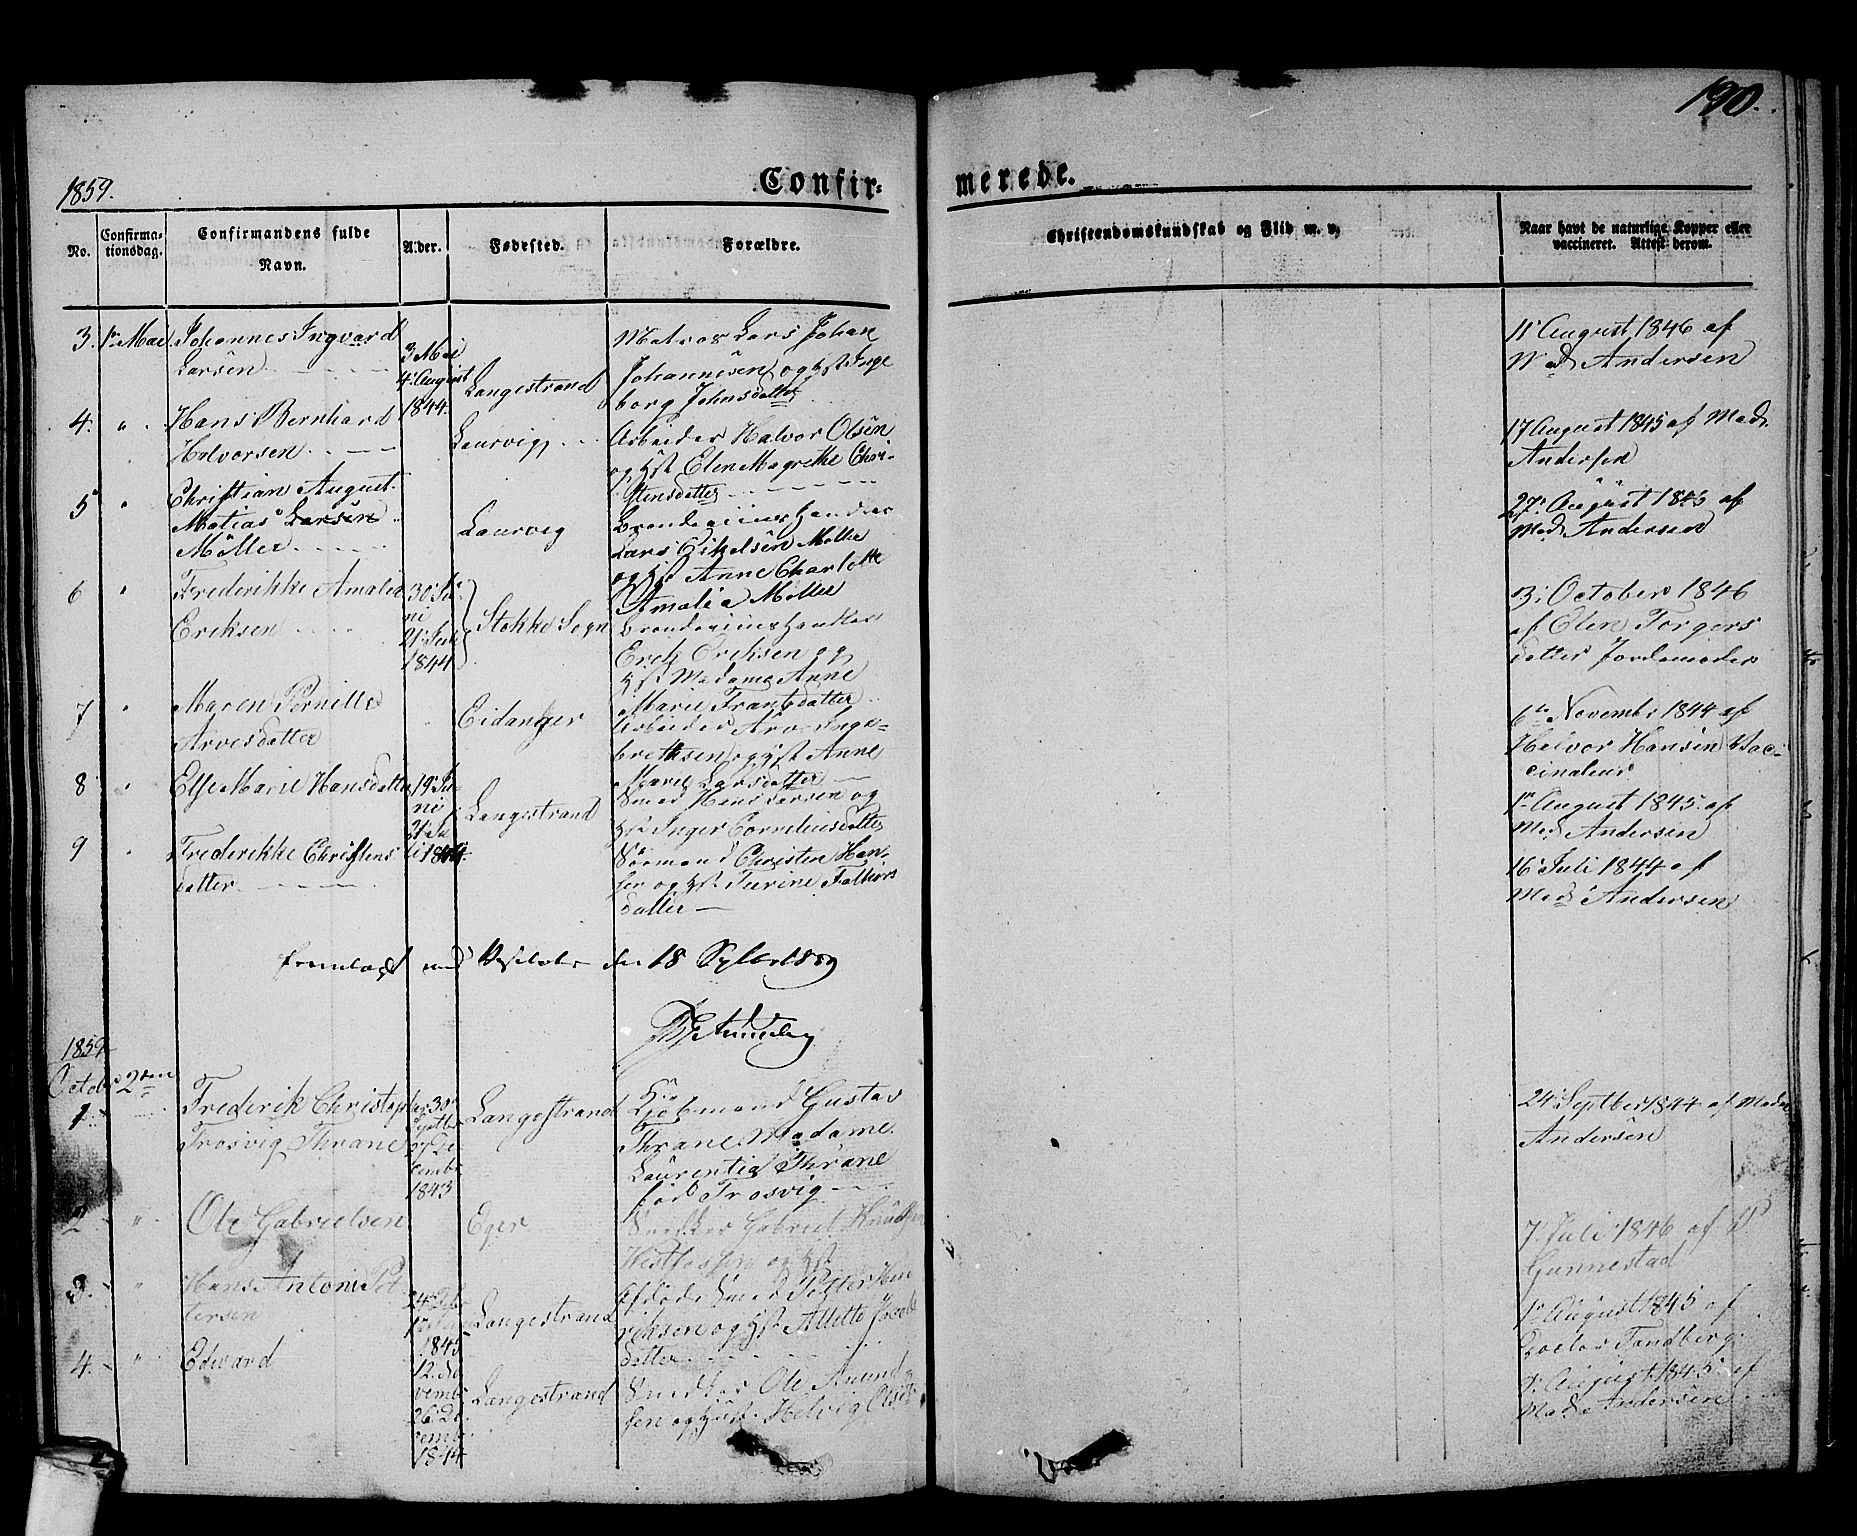 190.
1859.
Confir-
merede.
No.
Confirma-
tionsdag.
Confirmandens fulde
Navn.
Alder.
Fødested.
Forældre.
Christendomskundskab og Flid m. v.
Naar havt de naturlige Kopper eller
vaccineret. Attest derom.
3. 1ste Mai Johannes Ingvard
Larsen
3 Mai
4 August
1844.
Langestrand
Matros Lars Johan
Johannesen og Hst Inge
borg Johnsdatter
11 August 1846 af
Mad Andersen
4. " Hans Bernhard
Halvorsen
Laurvig
Arbeider Halvor Olsen
og Hst Elen Magrethe Chri-
stensdatter
17 August 1845 af Mad.
Andersen
5 " Christian August
Matias Larsen
Møller
Laurvig
Brændeviinshandler
Lars Eskelsen Møller
og Hst Anne Charlotte
Amalia Møller
27 August 1845 af
Mad Andersen
6 " Frederikke Amalia
Eriksen
30 Ju
ni
21 Juli
1844
Stokke Sogn
Brændeviinshandler
Erik Eriksen og
Hst Madame Anne
Marie Frantsdatter
3 October 1846
af Elen Torgers
datter Jordemoder
7 " Maren Pernille
Arvesdatter
Eidanger
Arbeider Arve Inge-
brethsen og Hst Anne
Marie Larsdatter
6te Novembr 1844 af
Halvor Hansen Vac-
cinateur
8 " Else Marie Hansdatter
19 Ju
ni
21 Ju
li 1844
Langestrand
Smed Hans Larsen og
Hst Inger Corneliusdatter
1ste August 1845 af
Mad Andersen
9 " Frederikke Christens
datter
Sømand Christen Han-
sen og Hst Turine Falkors
datter
16 Juli 1844 af
Mad Andersen
Fremlagt ved Visitats den 18 Sptbr 1859
1859
October 2den
1. Frederik Christopher
Trosvig Thrane
30
Septbr
07 De
cembr
1843
Langestrand
Kjøbmand Gustav
Thrane Madame
Laurentia Thrane
fød Trosvig
24 Septber 1844 af Mad
Andersen
2 " Ole Gabrielsen
Eger
Snedker Gabriel Knudsen
og Hst
7 Juli 1846 af P
Gunnestad
3. " Hans Antoni Pet
tersen
1845
Langestrand
Afdøde Smed Petter Hen
riksen og Hst Alette Jacobs
datter
1ste August 1845 af
Doctor Tandberg
4. " Edvard
12. No
vembr
26 De
cembr
1844
Langestrand
Snedker Ole Amund
sen og Hust. Helvig Olsdtr
1 August 1845 af
Mad Andersen